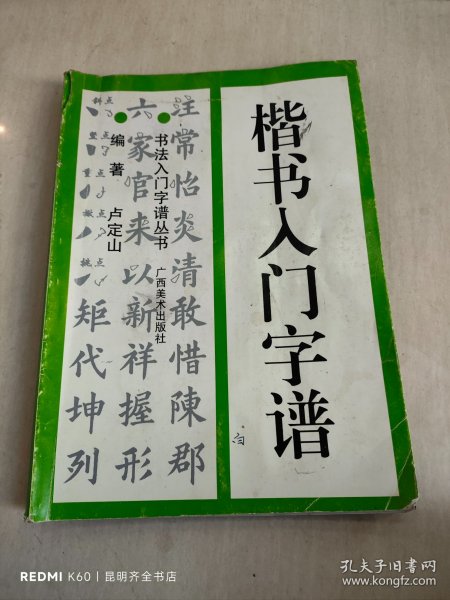 楷书入门字谱
书法入门字谱丛书
广西美术出版社
编著 卢定山
注常怡炎清敢惜陳郡
六家官来以新祥握形
斜点
竖点
重点
撇点
挑点
矩代坤列
REDMI K60 | 昆明齐全书店
孔夫子旧书网
www.kongfz.com